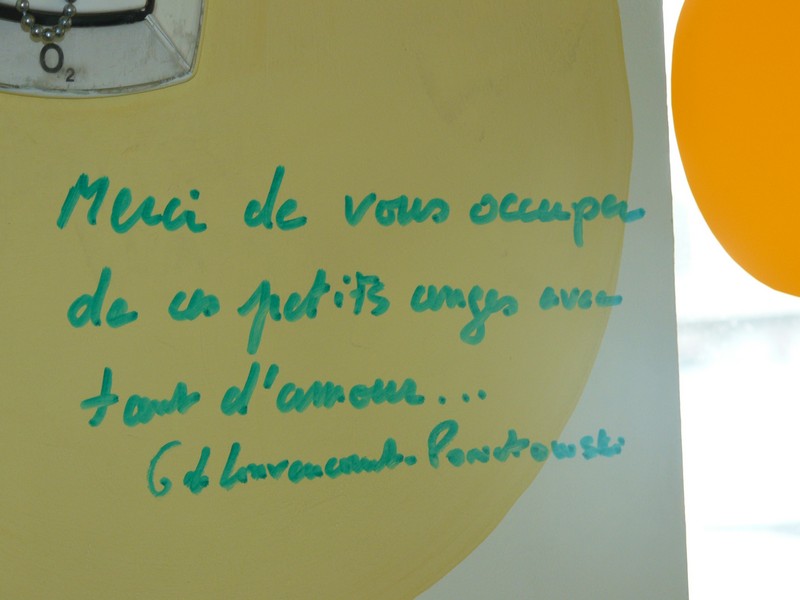 O2
Merci de vous occuper
de ces petits anges avec
tant d'amour...
G de Louvencourt. Poniatowski